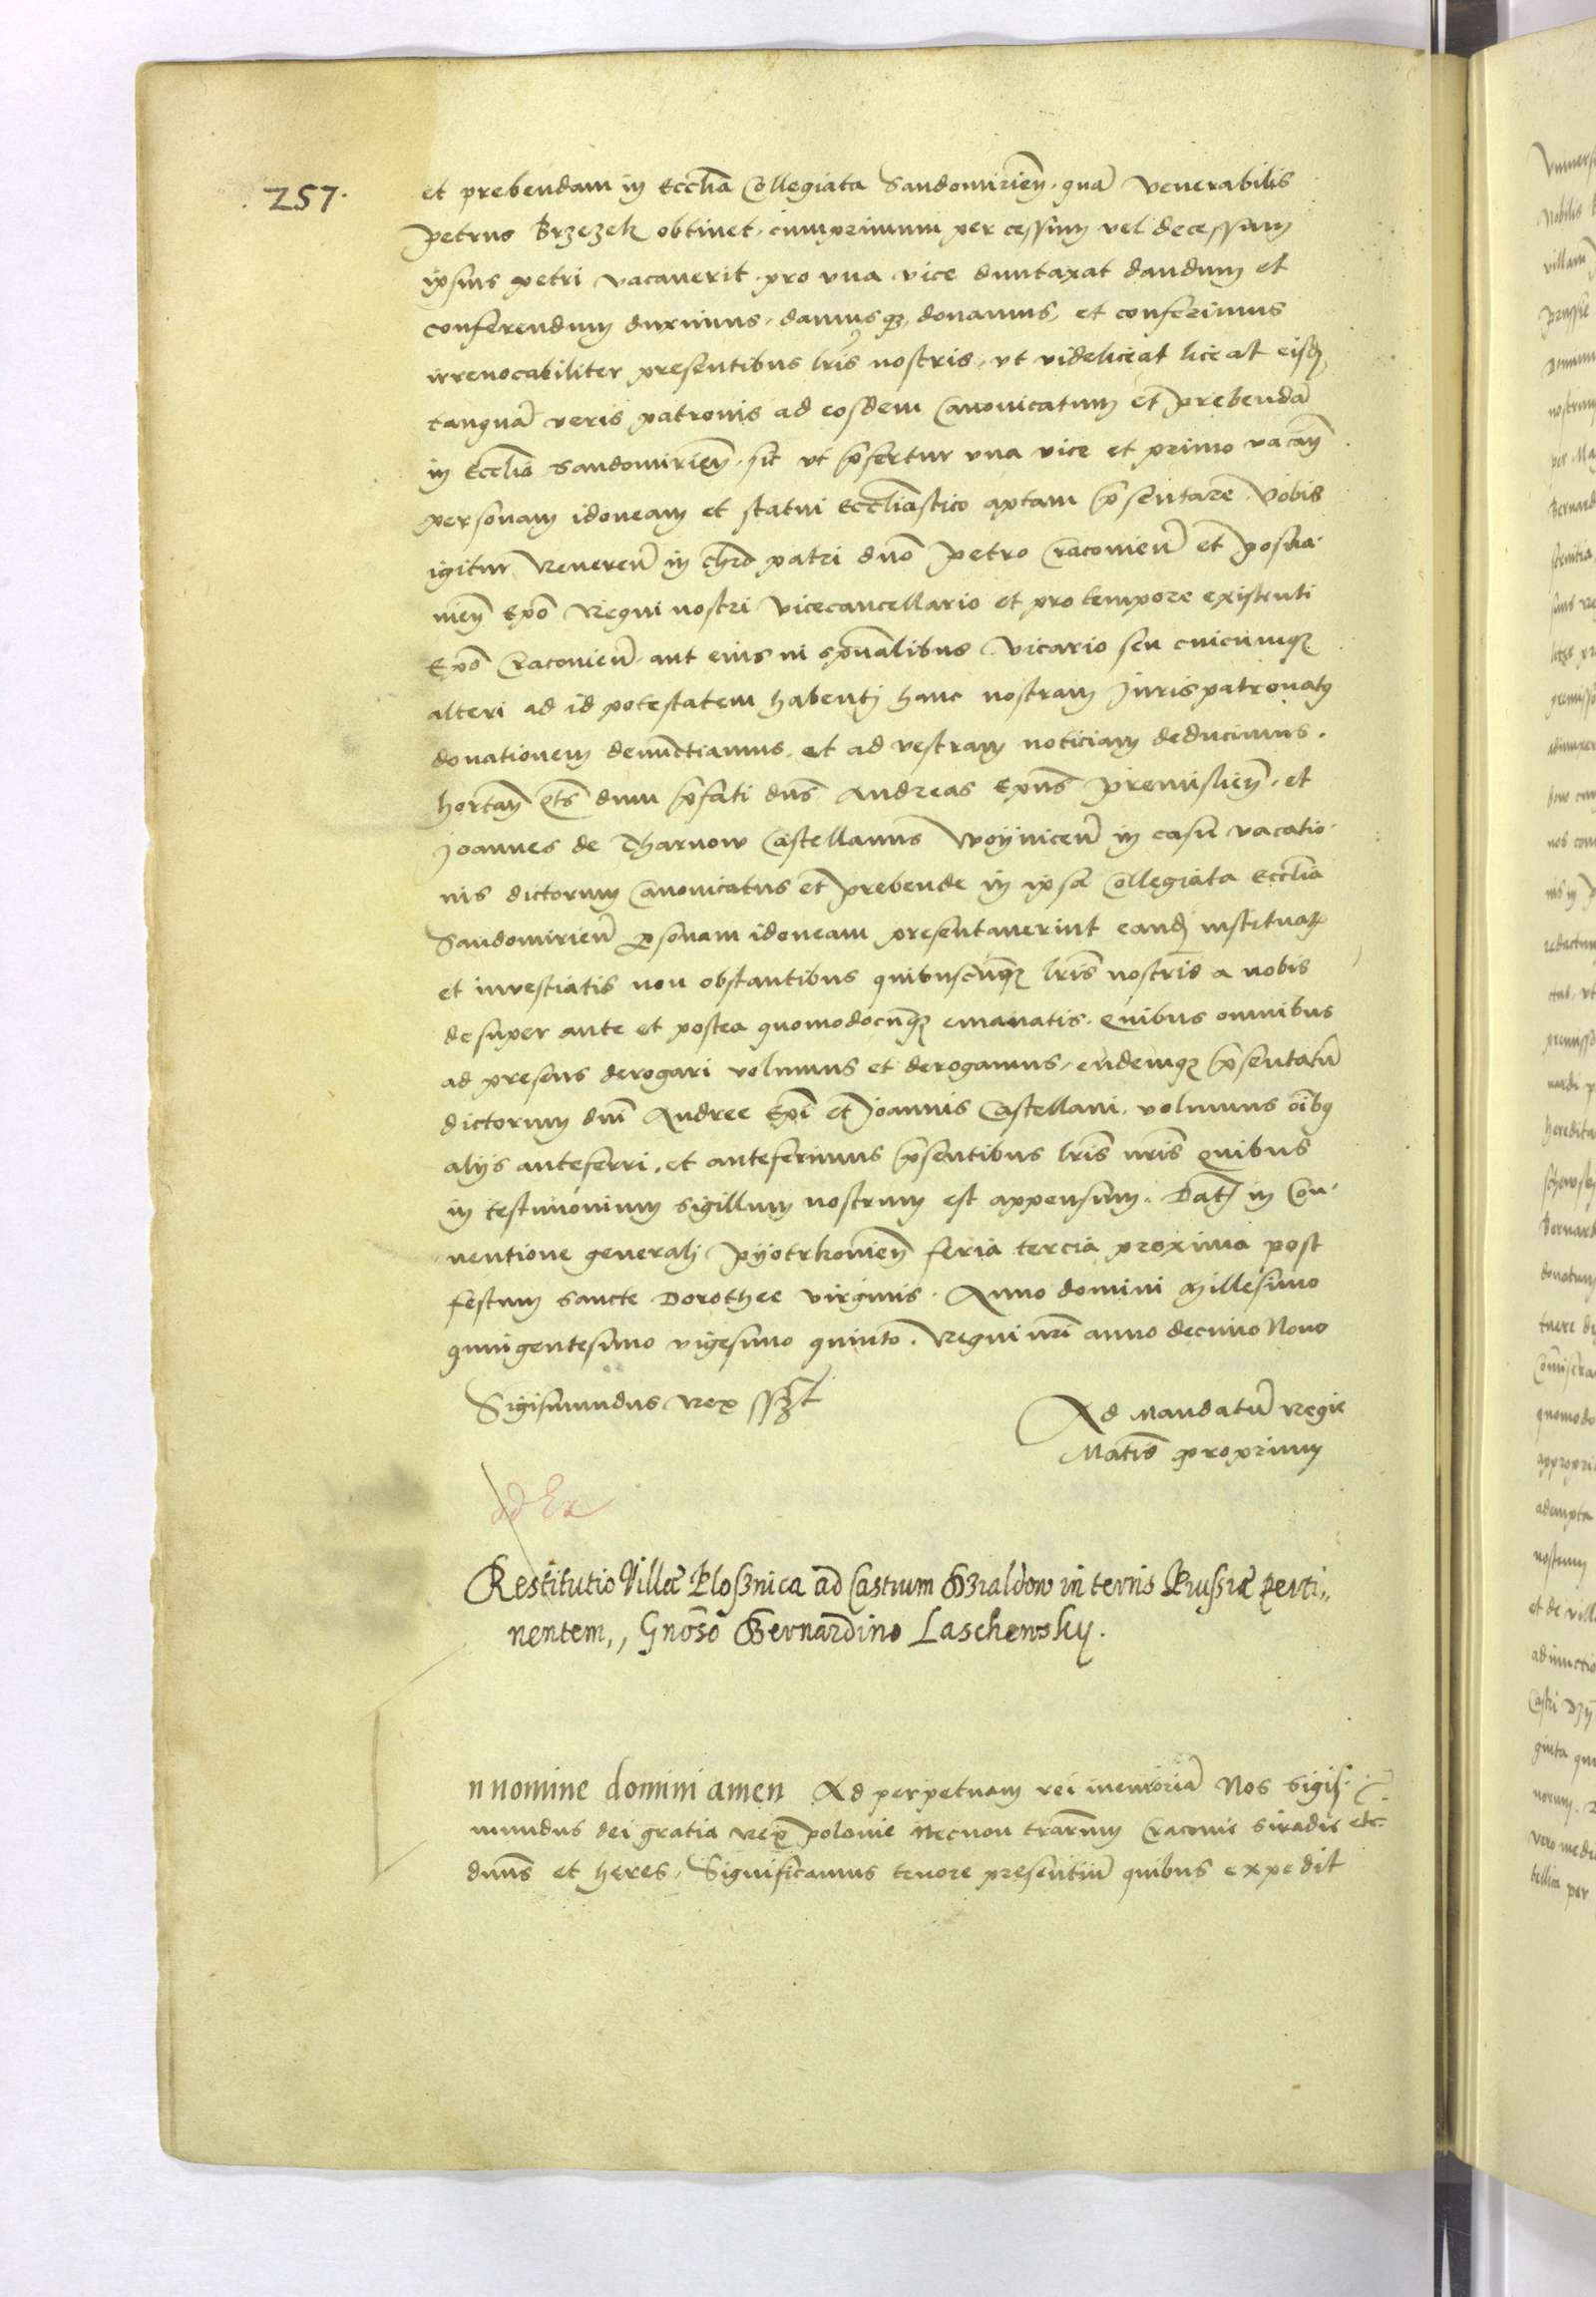 257.
et prebendam in Ecclīa Collegiata Sandomirieñ. quā venerabilis
Petrus Brzezek obtinet. cumprimum per cessum vel decessum
ipsius Petri vacauerit. pro vna vice duntaxat dandum et
conferendum duximus. damusq̄ donamus, et conferimus
irreuocabiliter presentibus lr̄is nostris, vt videliceat liceat eisd
tanquā veris patronis ad eosdem Canonicatum et prebendā
in Ecclīa Sandomirieñ. sic vt p̄fertur vna vice et primo vacañ
personam idoneam et statui Ecclīastico aptam p̄sentare. Vobis
igitur Reuereñ in chr̄o patri dn̄o Petro Cracouieñ et Posna-
nieñ Ep̄o Regni nostri Vicecancellario et pro tempore existenti
Ep̄o Cracouieñ. aut eius in spūalibus Vicario seu cuicumq̄
alteri ad id potestatem habenti hanc nostram Iurispatronatus
donationem denunctiamus. et ad vestram noticiam deducimus.
hortañ q̄ts dum p̄fati dn̄s Andreas Ep̄us Premislieñ. et
Joannes de Tharnow Castellanus Woyniceñ in casu vacatio-
nis dictorum Canonicatus et prebende in ipsa Collegiata Ecclīa
Sandomirieñ p̱sonam idoneam presentauerint eand instituatis
et inuestiatis non obstantibus quibuscūq̄ lr̄is nostris a nobis
desuper ante et postea quomodocūq̄ emanatis. Quibus omnibus
ad presens derogari volumus et derogamus, eūdemq̄ p̄sentatū
dictorum dn̄i Andree Ep̄i et Joannis Castellani. volumus oībus
alijs anteferri. et anteferimus p̄sentibus lr̄is nr̄is Quibus
in testimonium sigillum nostrum est appensum. Dat in Con-
uentione generali Pyotrkouieñ feria tercia proxima post
festum Sancte Dorothee virginis. Anno domini Millesimo
quingentesimo vigesimo quinto. Regni nr̄i anno decimo Nono
Sigismundus Rex sszt
Ad Mandatū Regie
Matīs proprium
ad Ex
Restitutio Villæ Plosznica ad Castrum Dzialdow in terris Prussiæ perti,,
nentem,, Gnōso Bernardino Laschewsky.
n nomine domini amen Ad perpetuam rei memoriā Nos Sigis-
mundus dei gratia Rex Polonie Necnon trārum Cracouie Siradie etc
dn̄us et heres, Significamus tenore presentiū quibus expedit